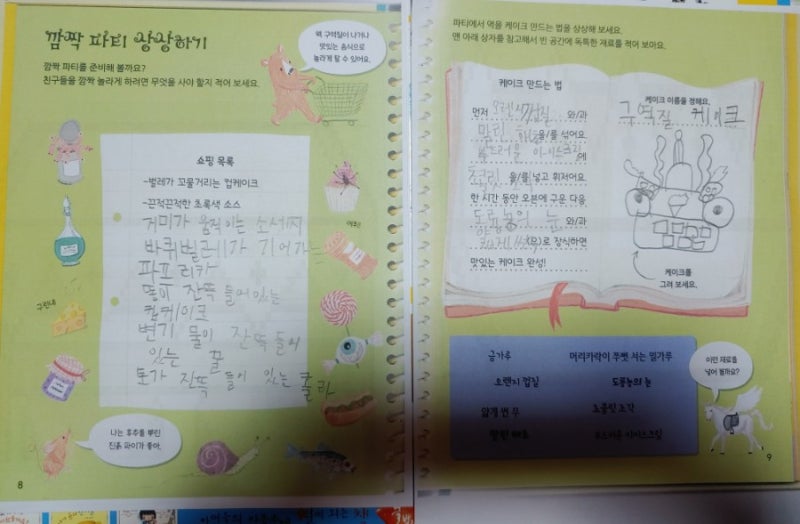 깜짝 파티 상상하기
깜짝 파티를 준비해 볼까요?
친구들을 깜짝 놀라게 하려면 무엇을 사야 할지 적어 보세요.
왝 구역질이 나거나
맛있는 음식으로
놀라게 할 수 있어요.
쇼핑 목록
-벌레가 꼬물거리는 컵케이크
-끈적끈적한 초록색 소스
거미가 움직이는 소세지
바퀴벌레가 기어가는
파프리카
똥이 잔뜩 들어있는
컵케이크
변기 물이 잔뜩 들어
있는 꿀
토가 잔뜩 들어 있는 콜라
구린내
나는 후추를 뿌린
진흙 파이가 좋아.
8
파티에서 먹을 케이크 만드는 법을 상상해 보세요.
맨 아래 상자를 참고해서 빈 공간에 독특한 재료를 적어 보아요.
케이크 만드는 법
먼저 오렌지껍질 와/과
말린 해초을/를 섞어요.
부드러운 아이스크림에
을/를 넣고 휘저어요.
한 시간 동안 오븐에 구운 다음
도롱뇽의 눈 와/과
(으)로 장식하면
맛있는 케이크 완성!
케이크 이름을 정해요.
구역질 케이크
케이크를
그려 보세요.
금가루
머리카락이 쭈뼛 서는 밀가루
오렌지 껍질
도롱뇽의 눈
얇게 썬 무
초콜릿 조각
말린 해초
부드러운 아이스크림
어떤 재료를
넣어 볼까요?
9